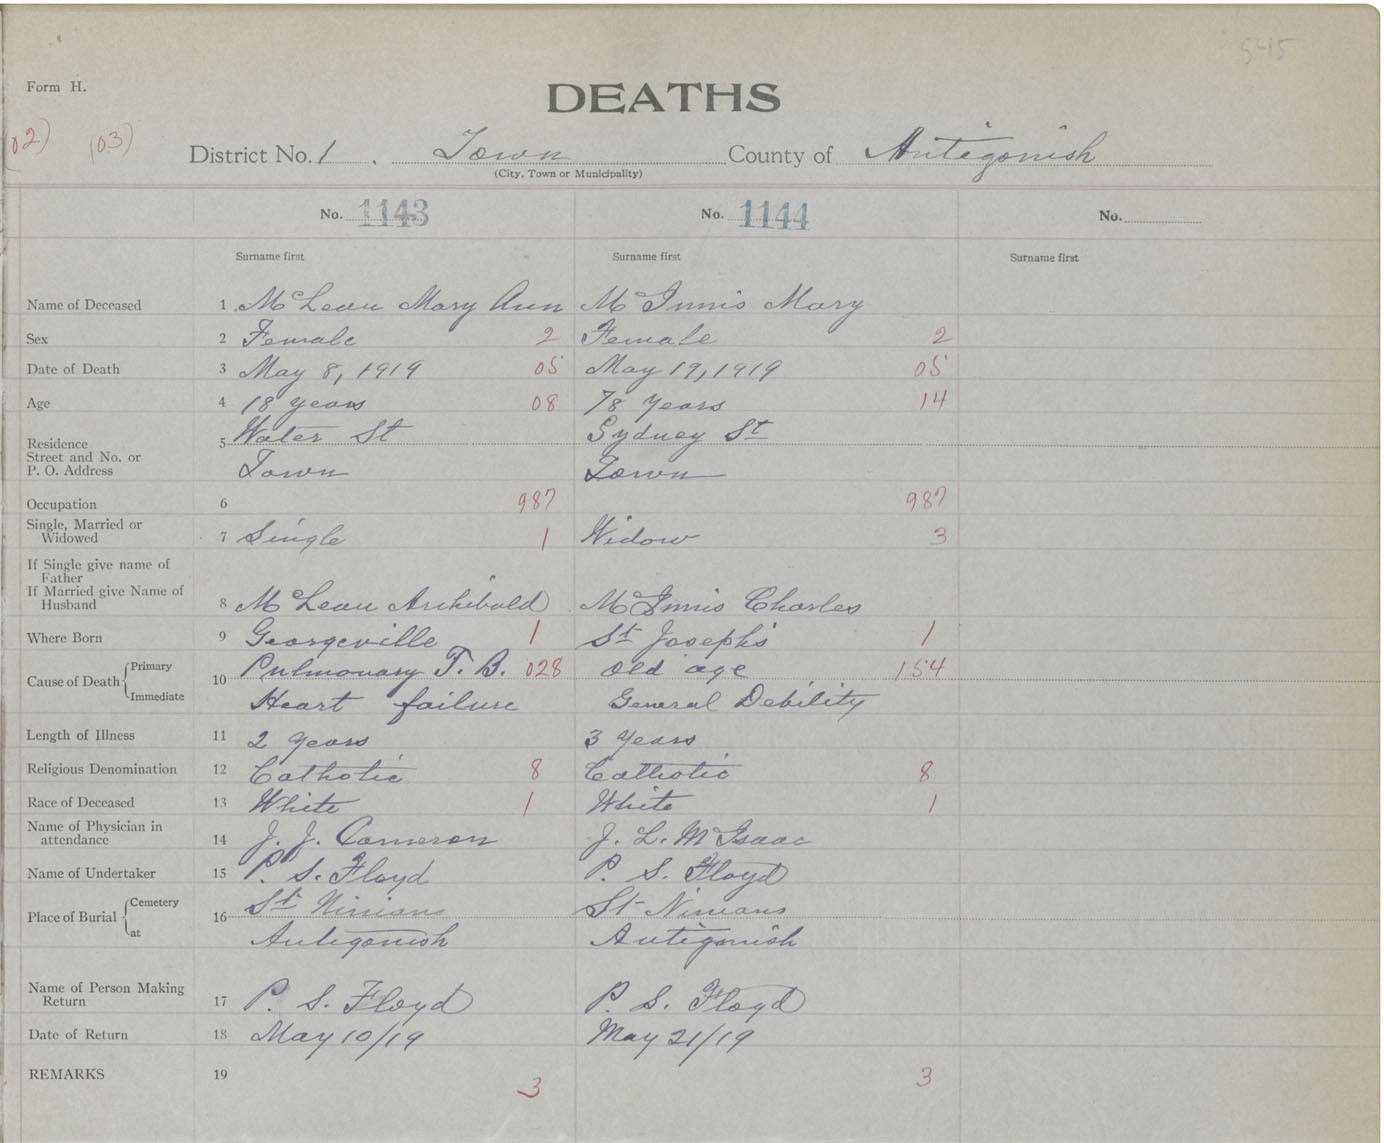 545
Form H.
DEATHS
02) (03)
District No. 1. Town County of Antigonish
(City, Town or Municipality)
No. 1143 No. 1144 No.
Surname first Surname first Surname first
Name of Deceased 1 McLean Mary Ann McInnis Mary
Sex 2 Female 2 Female 2
Date of Death 3 May 8, 1919 05 May 19, 1919 05
Age 4 18 years 08 78 Years 14
Residence 5 Water St Sydney St
Street and No. or
P. O. Address Town Town
Occupation 6 987 987
Single, Married or
Widowed 7 Single 1 Widow 3
If Single give name of
Father
If Married give Name of
Husband 8 McLean Archibald McInnis Charles
Where Born 9 Georgeville 1 St Joseph's 1
Cause of Death Primary 10 Pulmonary T. B. 028 old age 154
Immediate Heart failure General Debility
Length of Illness 11 2 years 3 Years
Religious Denomination 12 Catholic 8 Catholic 8
Race of Deceased 13 White 1 White 1
Name of Physician in
attendance 14 J. J. Cameron J. L. McIsaac
Name of Undertaker 15 P. S. Floyd P. S. Floyd
Place of Burial Cemetery 16 St Ninians St Ninians
at Antigonish Antigonish
Name of Person Making
Return 17 P. S. Floyd P. S. Floyd
Date of Return 18 May 10/19 May 21/19
REMARKS 19 3 3